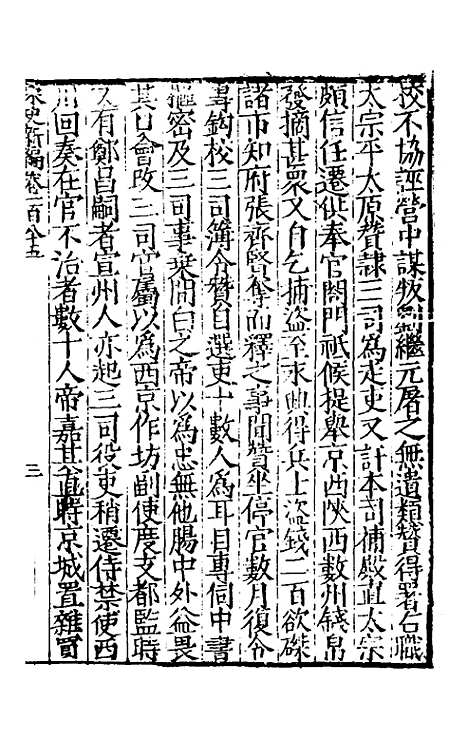 校不協誣營中謀叛劉繼元屠之無遺類贊得署右職
太宗平太原贊隸三司為走吏又訐本司補殿直太宗
頗信任遷供奉官閤門祗候提舉京西陝西數州錢帛
發摘甚衆又自乞捕盜至永興得兵士盜錢二百欲磔
諸市知府張齊賢奪而釋之事聞贊坐停官數月復令
專鈎校三司簿令贊自選吏十數人為耳目專伺中書
樞密及三司事乘間白之帝以為忠無他腸中外益畏
其口會改三司官屬以為西京作坊副使度支都監時
又有鄭昌嗣者宣州人亦起三司役吏稍遷侍禁使西
川回奏在官不治者數十人帝嘉其直時京城置雜買
宋史新編卷一百八十五
三